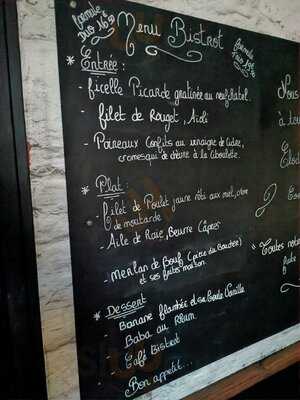 formule
Duo 16.50
Menu Bistrot
formule
Trio
* Entrée :
- ficelle Picarde gratinée au neufchatel.
- filet de Rouget, Aïoli
- Poireaux Confits au vinaigre de Cidre,
cromesqui de chèvre à la Ciboulette.
* Plat :
- filet de Poulet jaune rôti au miel, crème
de moutarde
- Aile de Raie, Beurre Câpres
- Merlan de Bœuf (pièce du Boucher)
et ses frites maison
* Dessert
- Banane flambée et sa boule Vanille
- Baba au Rhum
- Café Bistrot
Bon appetit...
Nous
à tou
Elod
Toutes nos
faite